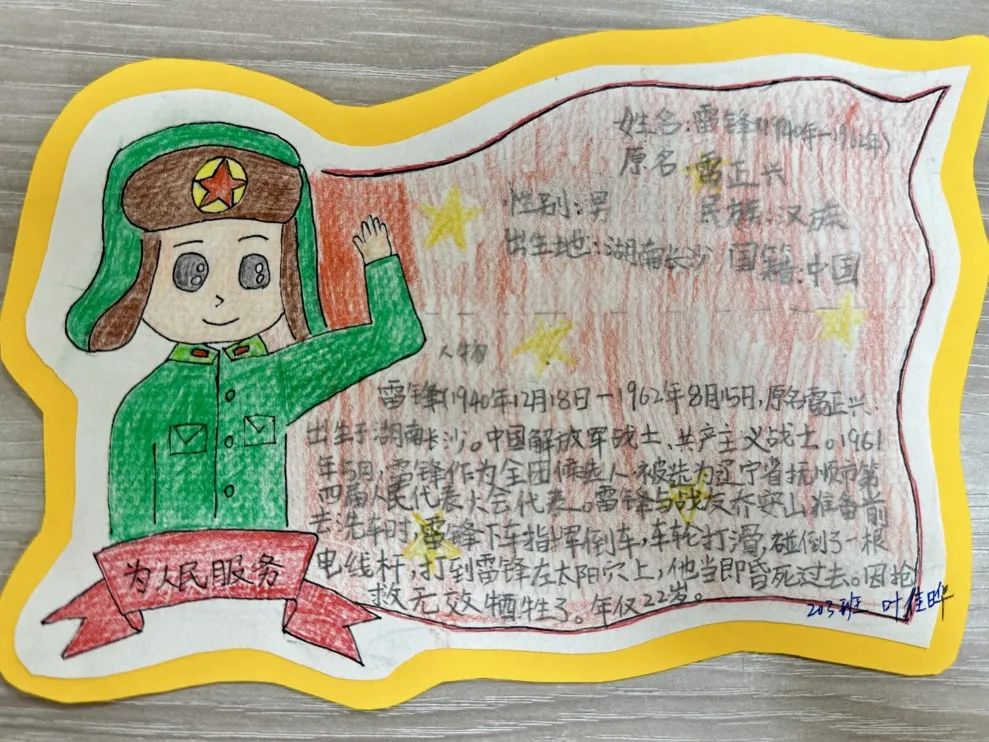 姓名:雷锋(1940年—1962年)
原名:雷正兴
性别:男 民族:汉族
出生地:湖南长沙 国籍:中国
人物
雷锋(1940年12月18日—1962年8月15日,原名雷正兴.
出生于湖南长沙。中国解放军战士、共产主义战士。1961
年5月,雷锋作为全团候选人被选为辽宁省抚顺市第
四届人民代表大会代表。雷锋与战友乔安山准备前
去洗车时,雷锋下车指挥倒车,车轮打滑,碰倒了一根
电线杆,打到雷锋左太阳穴上,他当即昏死过去。因抢
救无效牺牲了。年仅22岁。
为人民服务
203班 叶佳晔